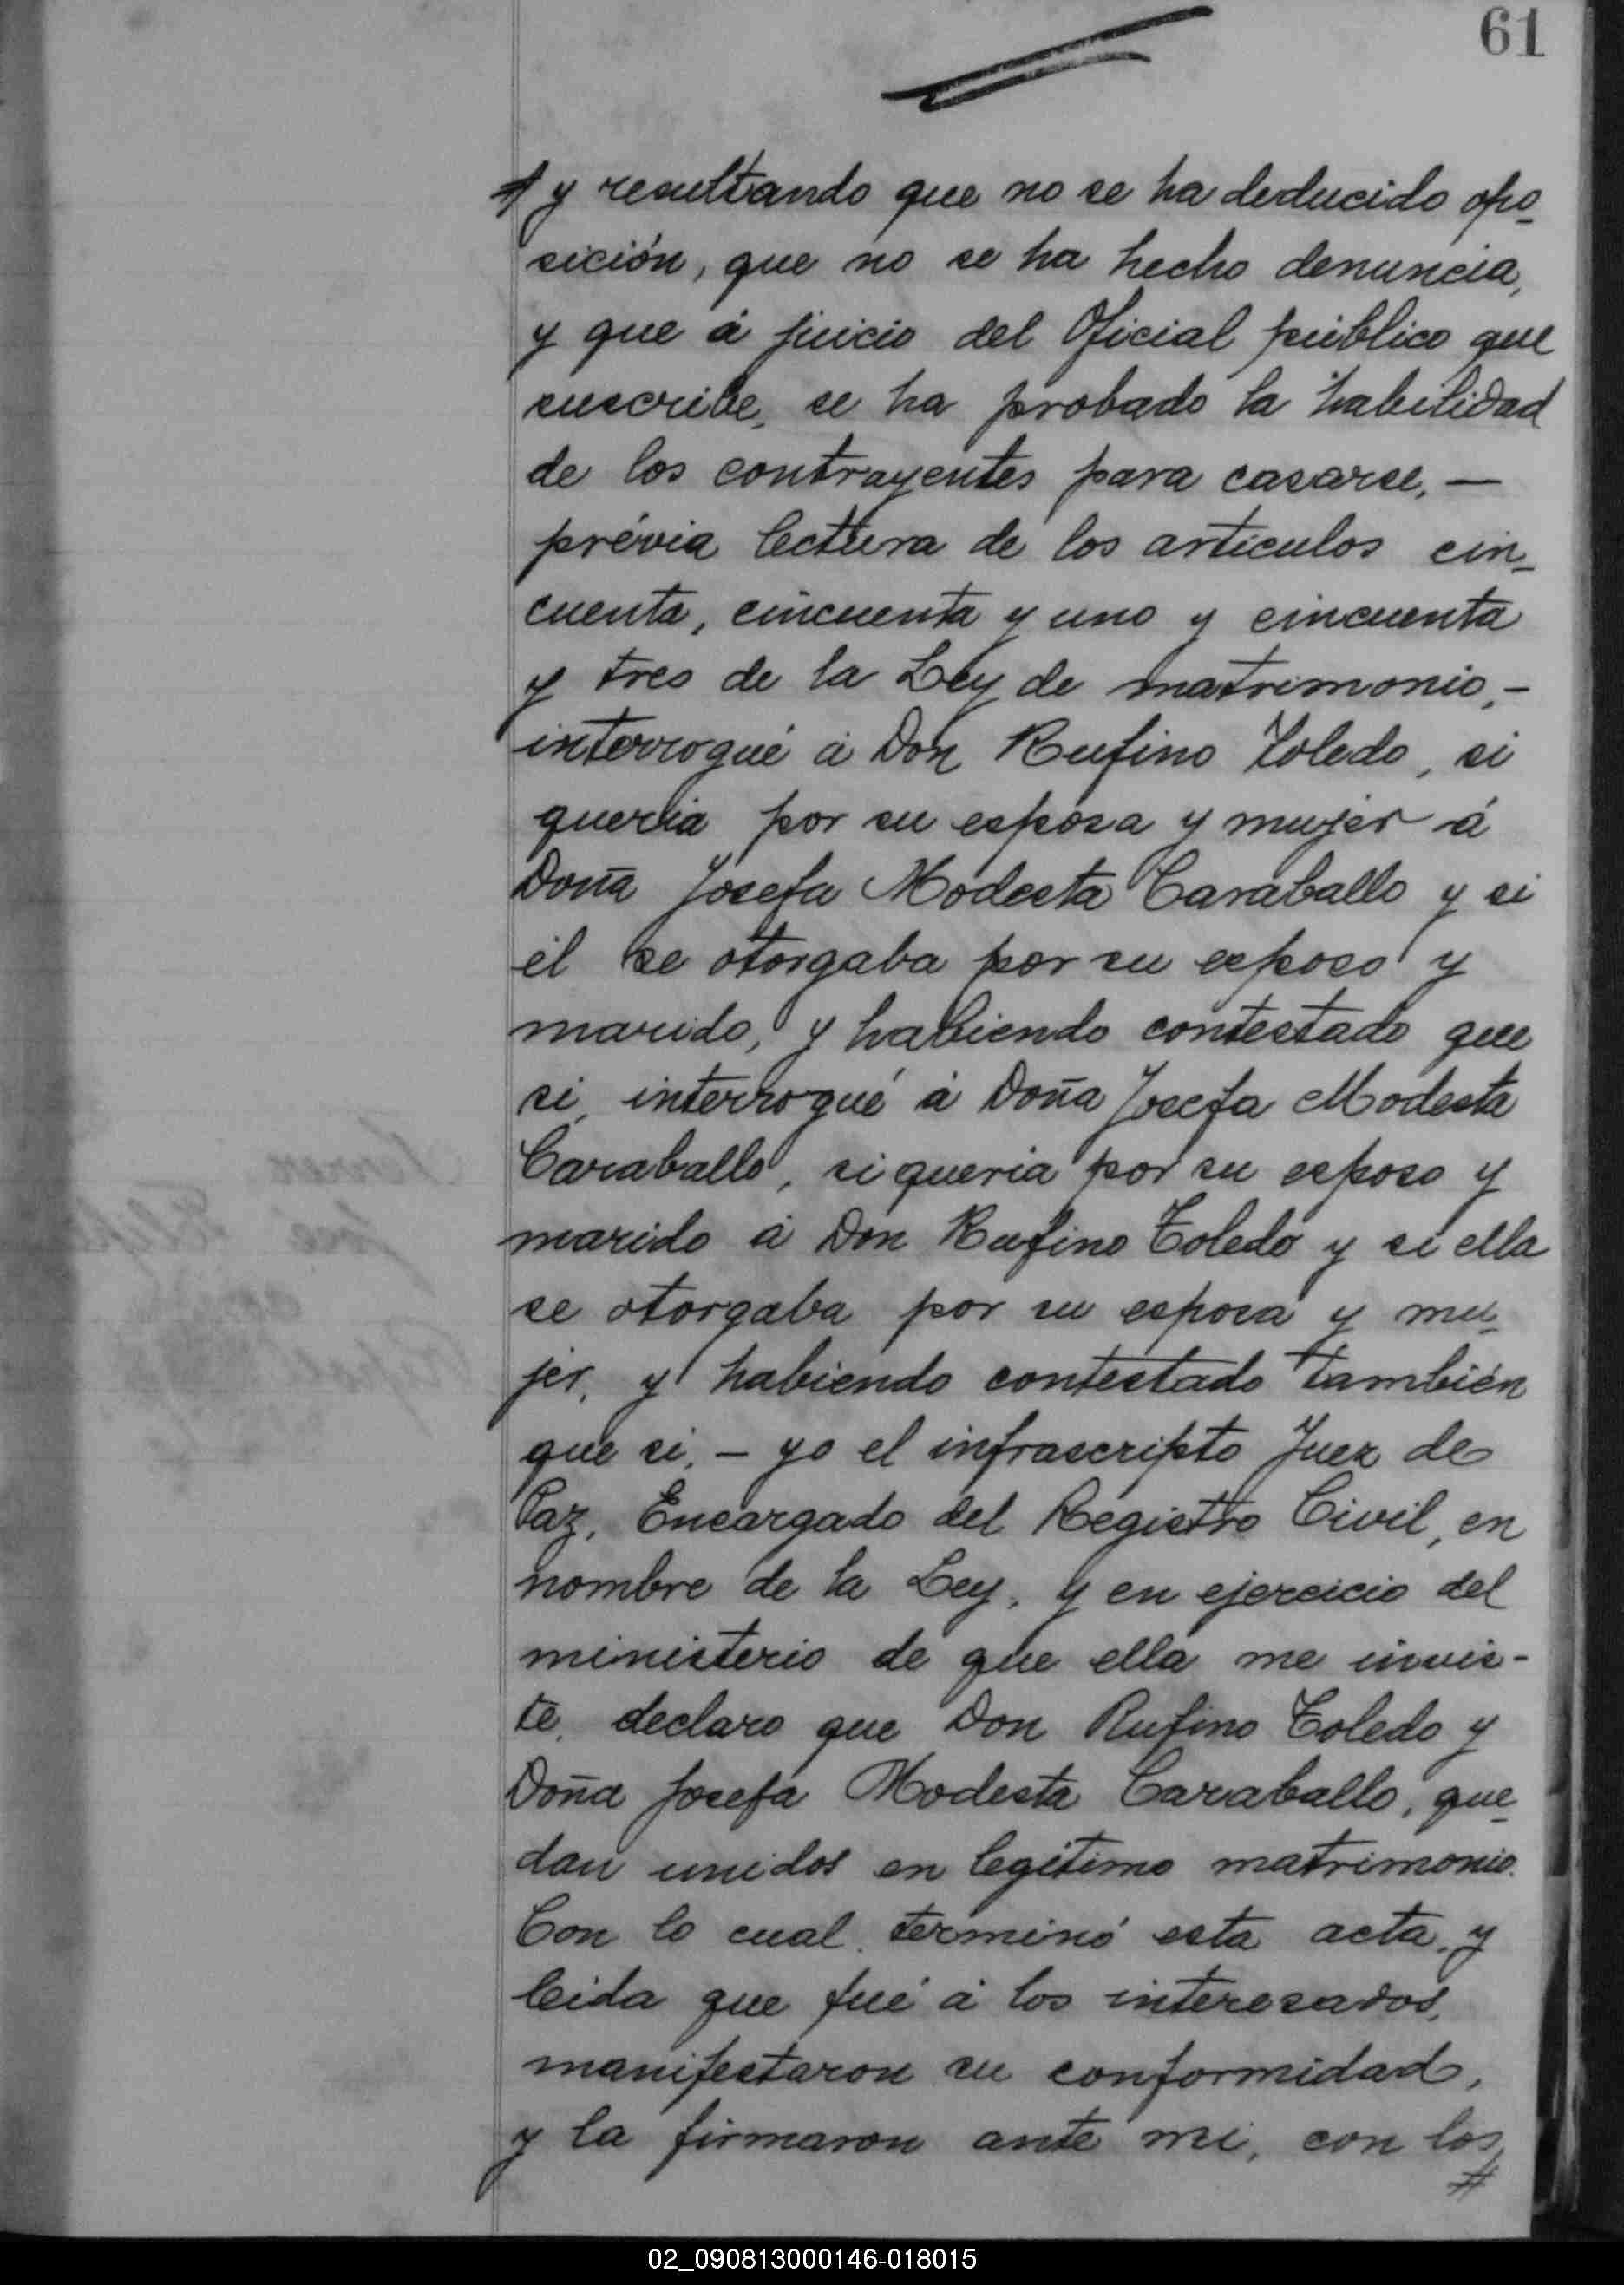 61
# y resultando que no se ha deducido opo-
sición, que no se ha hecho denuncia,
y que á juicio del Oficial público que
suscribe, se ha probado la habilidad
de los contrayentes para casarse, —
prévia lectura de los artículos cin-
cuenta, cincuenta y uno y cincuenta
y tres de la Ley de matrimonio, -
interrogué á Don Rufino Toledo, si
queria por su esposa y mujer á
Doña Josefa Modesta Caraballo y si
él se otorgaba por su esposo y
marido, y habiendo contestado que
si, interrogué á Doña Josefa Modesta
Caraballo, si queria por su esposo y
marido á Don Rufino Toledo y si ella
se otorgaba por su esposa y mu-
jer, y habiendo contestado también
que si, - yo el infrascripto Juez de
Paz, Encargado del Registro Civil, en
nombre de la Ley, y en ejercicio del
ministerio de que ella me invis-
te, declaro que Don Rufino Toledo y
Doña Josefa Modesta Caraballo, que-
dan unidos en legítimo matrimonio.
Con lo cual terminó esta acta, y
leida que fué á los interesados,
manifestaron su conformidad,
y la firmaron ante mi, con los
#
02_090813000146-018015